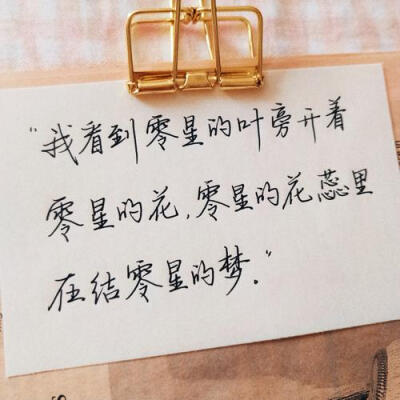 "我看到零星的叶旁开着
零星的花,零星的花蕊里
在结零星的梦."